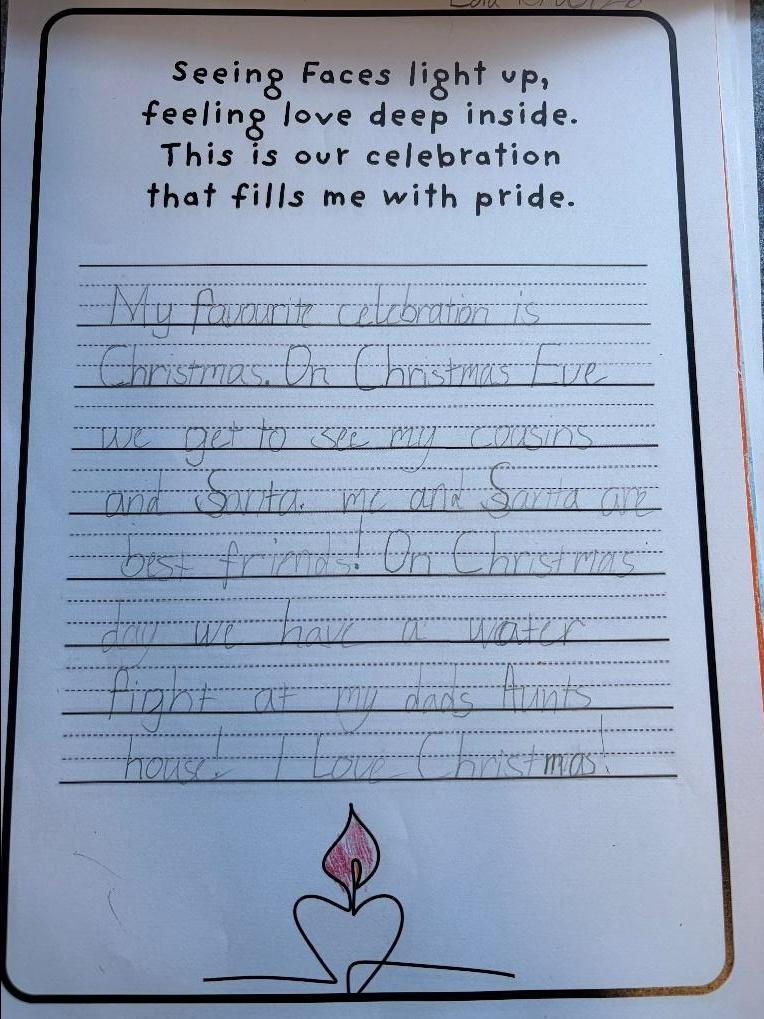 Seeing Faces light up,
feeling love deep inside.
This is our celebration
that fills me with pride.
My favourite celebration is
Christmas. On Christmas Eve
we get to see my cousins
and Santa. me and Santa are
best friends! On Christmas
day we have a water
fight at my dads Aunts
house! I Love Christmas!